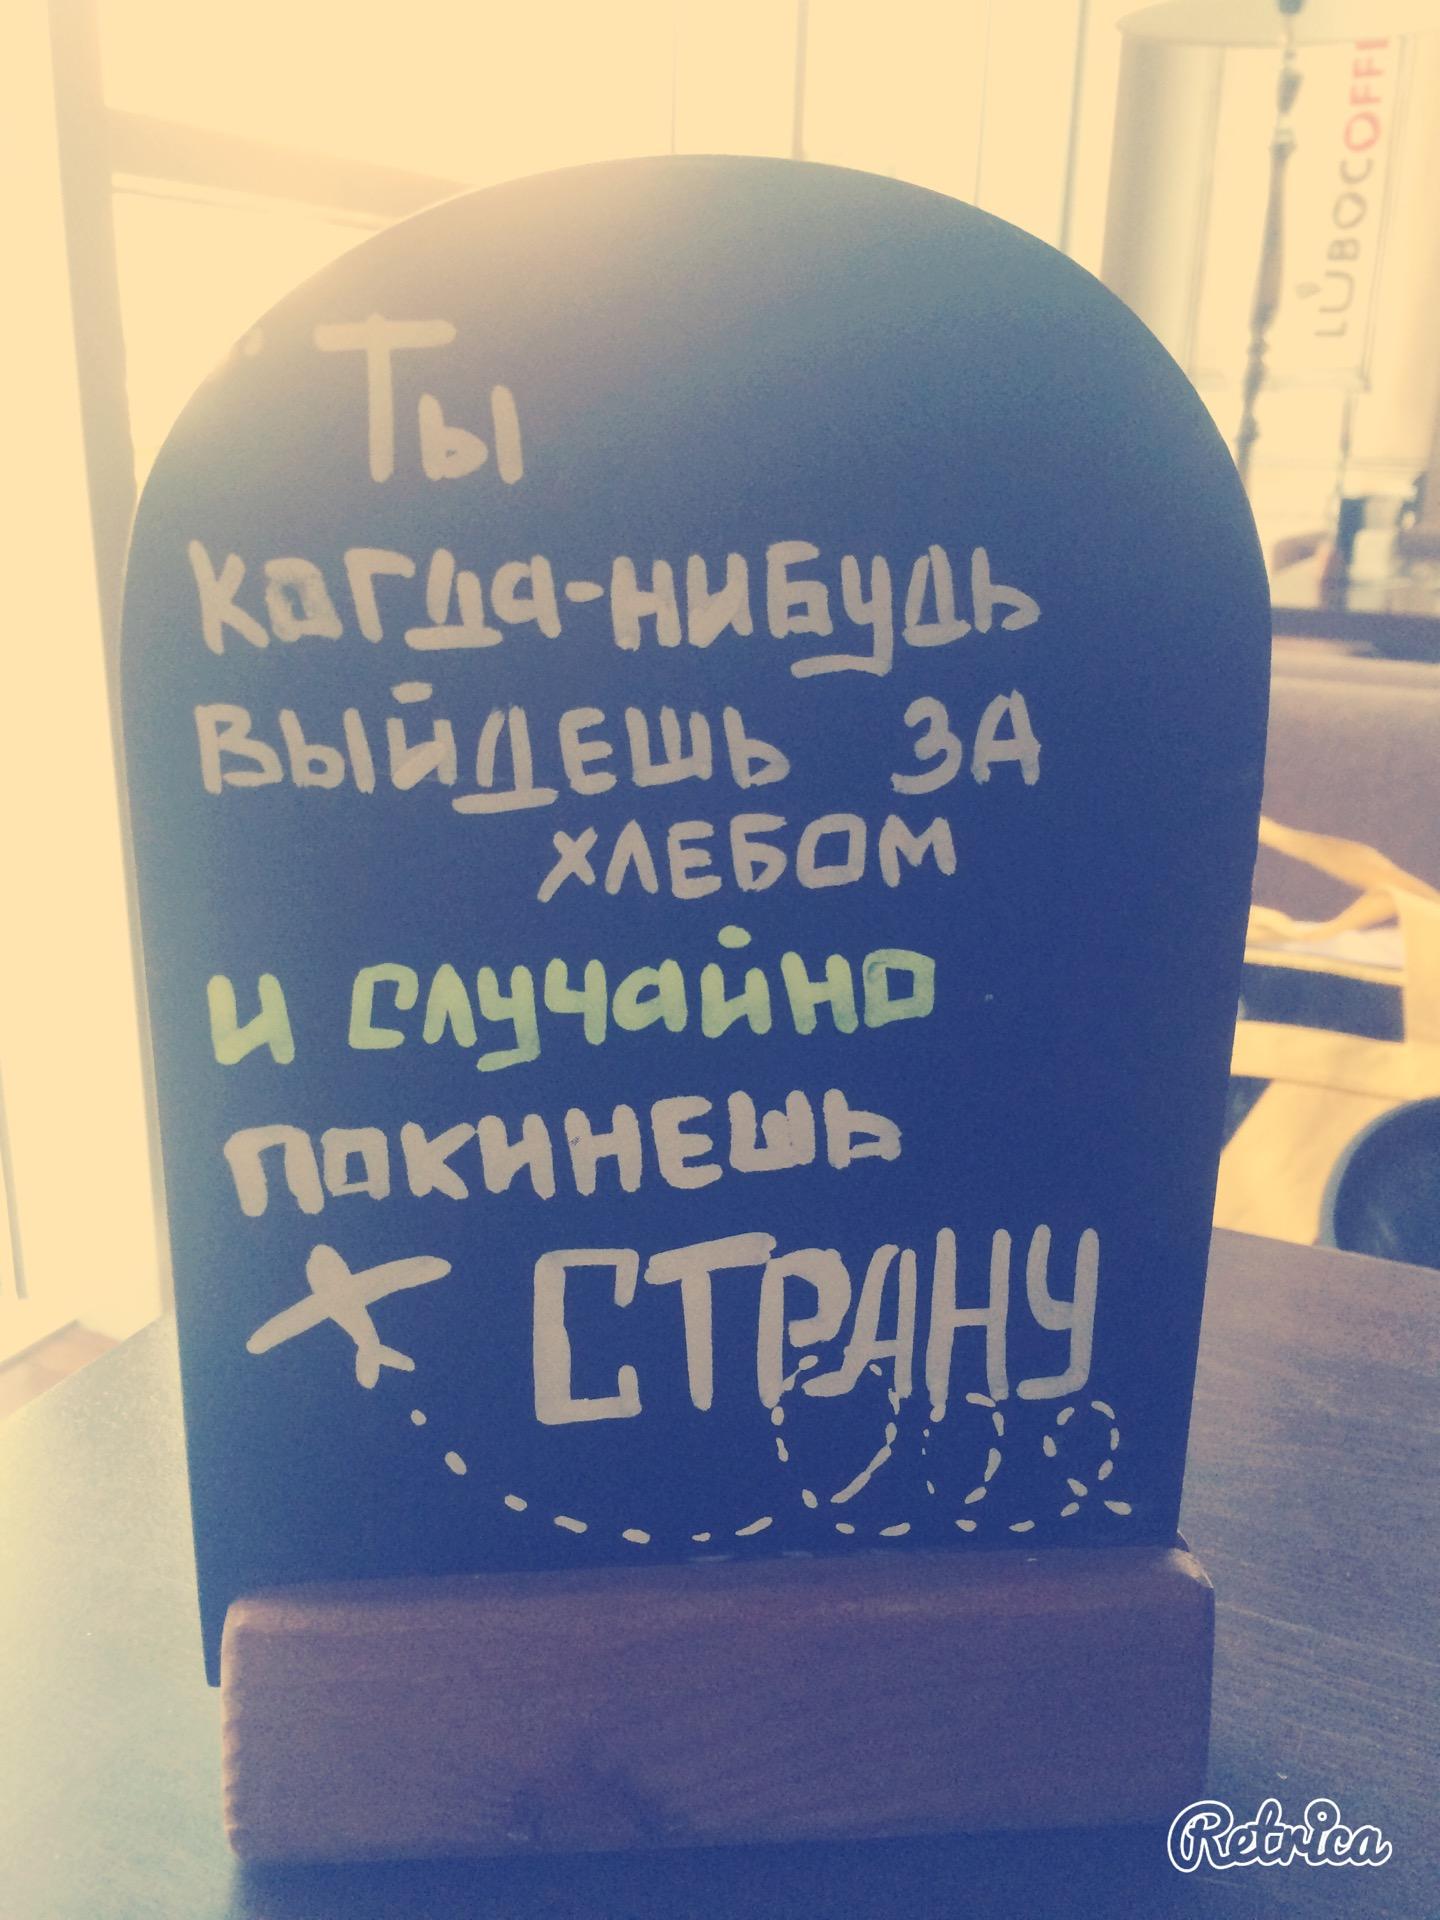 Ты
когда-нибудь
выйдешь за
хлебом
и случайно
покинешь
СТРАНУ
LUBOCOFFE
Retrica